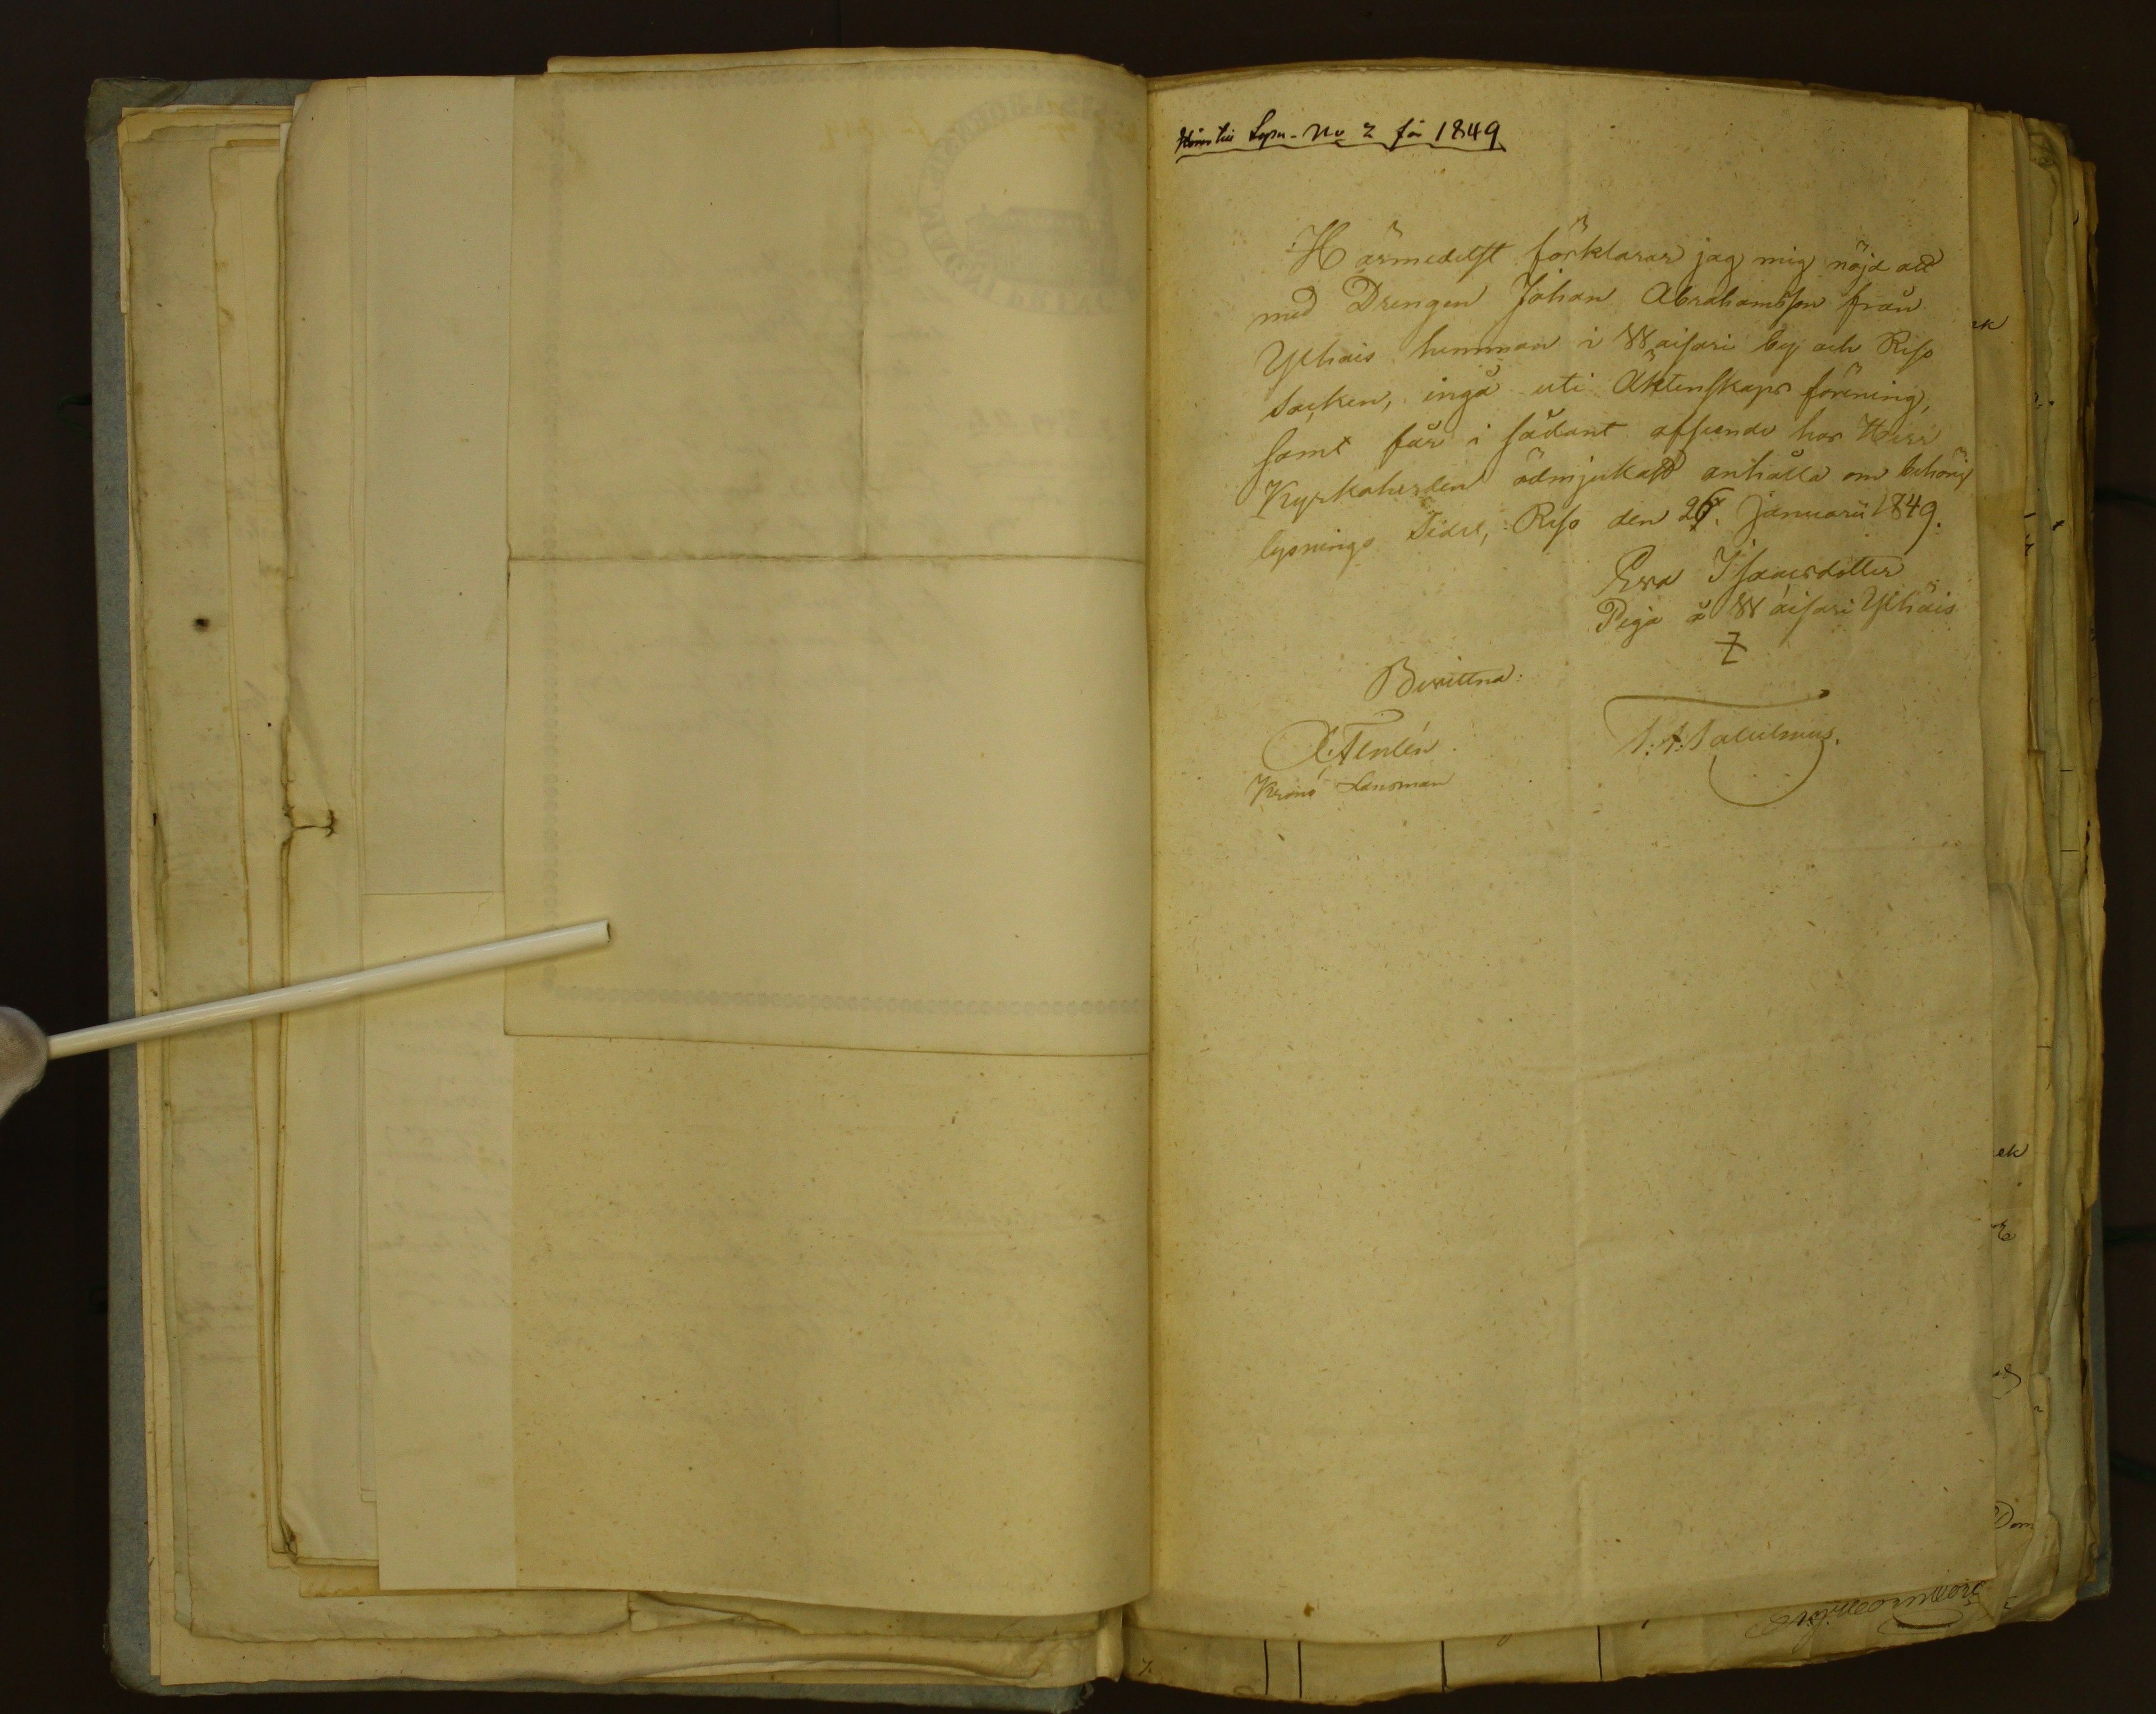 Hörer till Lysn.-No 2 för 1849
Härmedelst förklarar jag mig nöjd att
med Drengen Johan Abrahamsson från
Ylhäis hemman i Waisari by och Reso
Socken, ingå uti Äktenskaps förening,
samt får i sådant afseende hos Herr
Kyrkoherden ödmjukast anhålla om behörig
lysnings Sedel, Reso den 26. Januarii 1849.
Ewa Isaacsdotter
Piga å Waisari Ylhäis
Bevittna:
Krono Länsman
ek
Dom